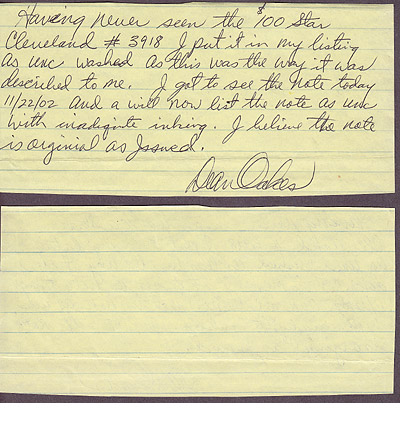 Having never seen the $100 Star
Cleveland # 3918 I put it in my listing
as unc washed as this was the way it was
described to me. I got to see the note today
11/22/02 and a will now list the note as unc
with inadiquite inking. I believe the note
is orginial as Issued.
Dean Oakes